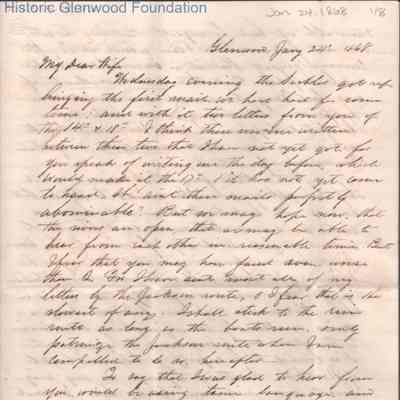 Historic Glenwood Foundation
Jan 24. 1868
Glenwood Jany 24th 1868.
My Dear Wife
Wednesday evening the got up
bringing the first mail we have had for some
time; and with it two letters from you of
the 14th & 18th. I think there was one written
between them two that I have not yet got for
you speak of writing me the day before, which
would make it the 17th & it has not yet come
to hand. these mails perfectly
abominable? But we may hope now, that
the rivers are open that we may be able to
hear from each other in reasonable time. But
I fear that you may have fared even worse
than I. For I have sent most all of my
letters by the Jackson route, & I fear that is the
slowest of any. I shall stick to the river
route as long as the boats run, only
patronize the Jackson route when I am
compelled to do so, hereafter.
To say that I was glad to hear from
you, would be using tame language, and